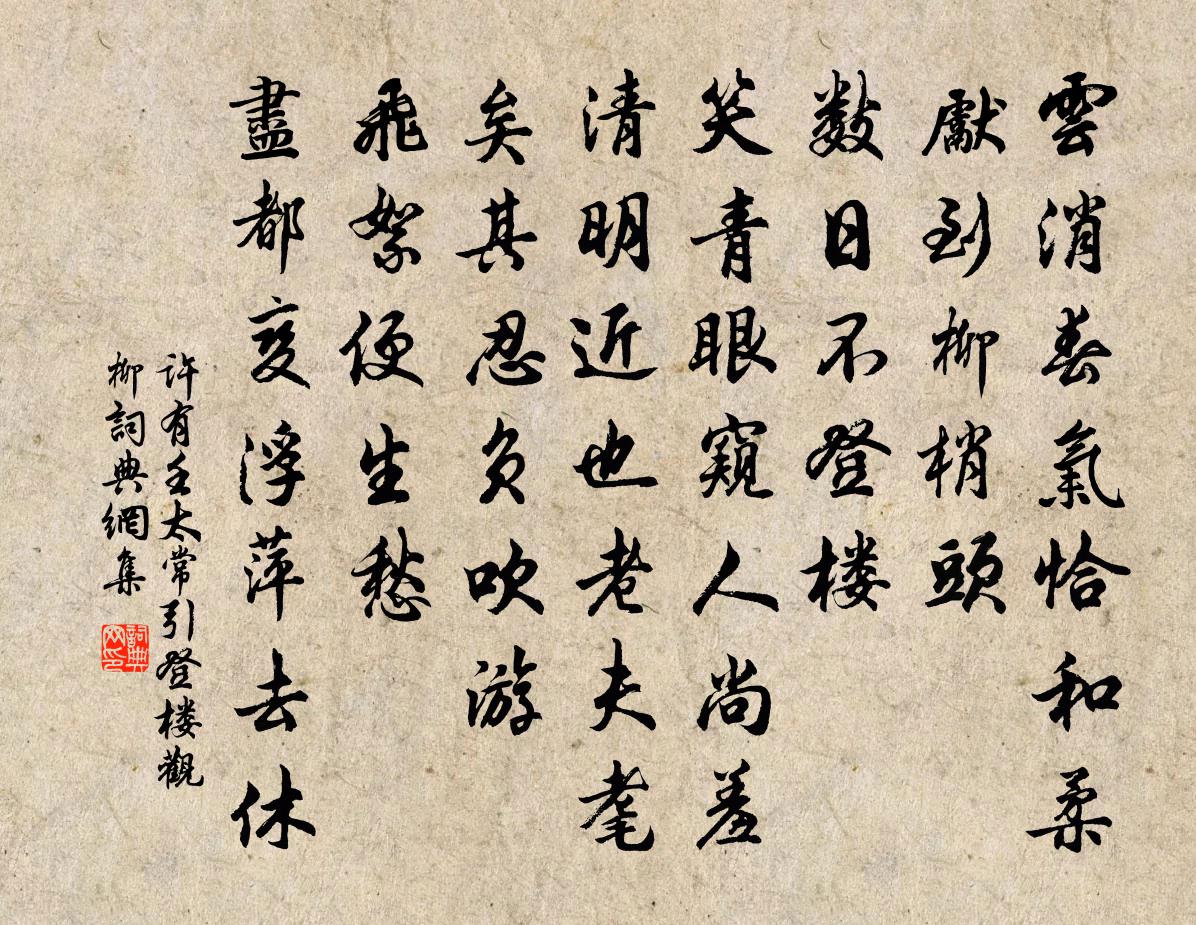 雲消春氣恰和柔
獻到柳梢頭
數日不登楼
笑青眼窺人尚羞
清明近也老夫耄
矣其忍负吹游
飛絮便生愁
盡都变浮萍去休
許有壬太常引登楼觀
柳詞典網集
詞典
网印